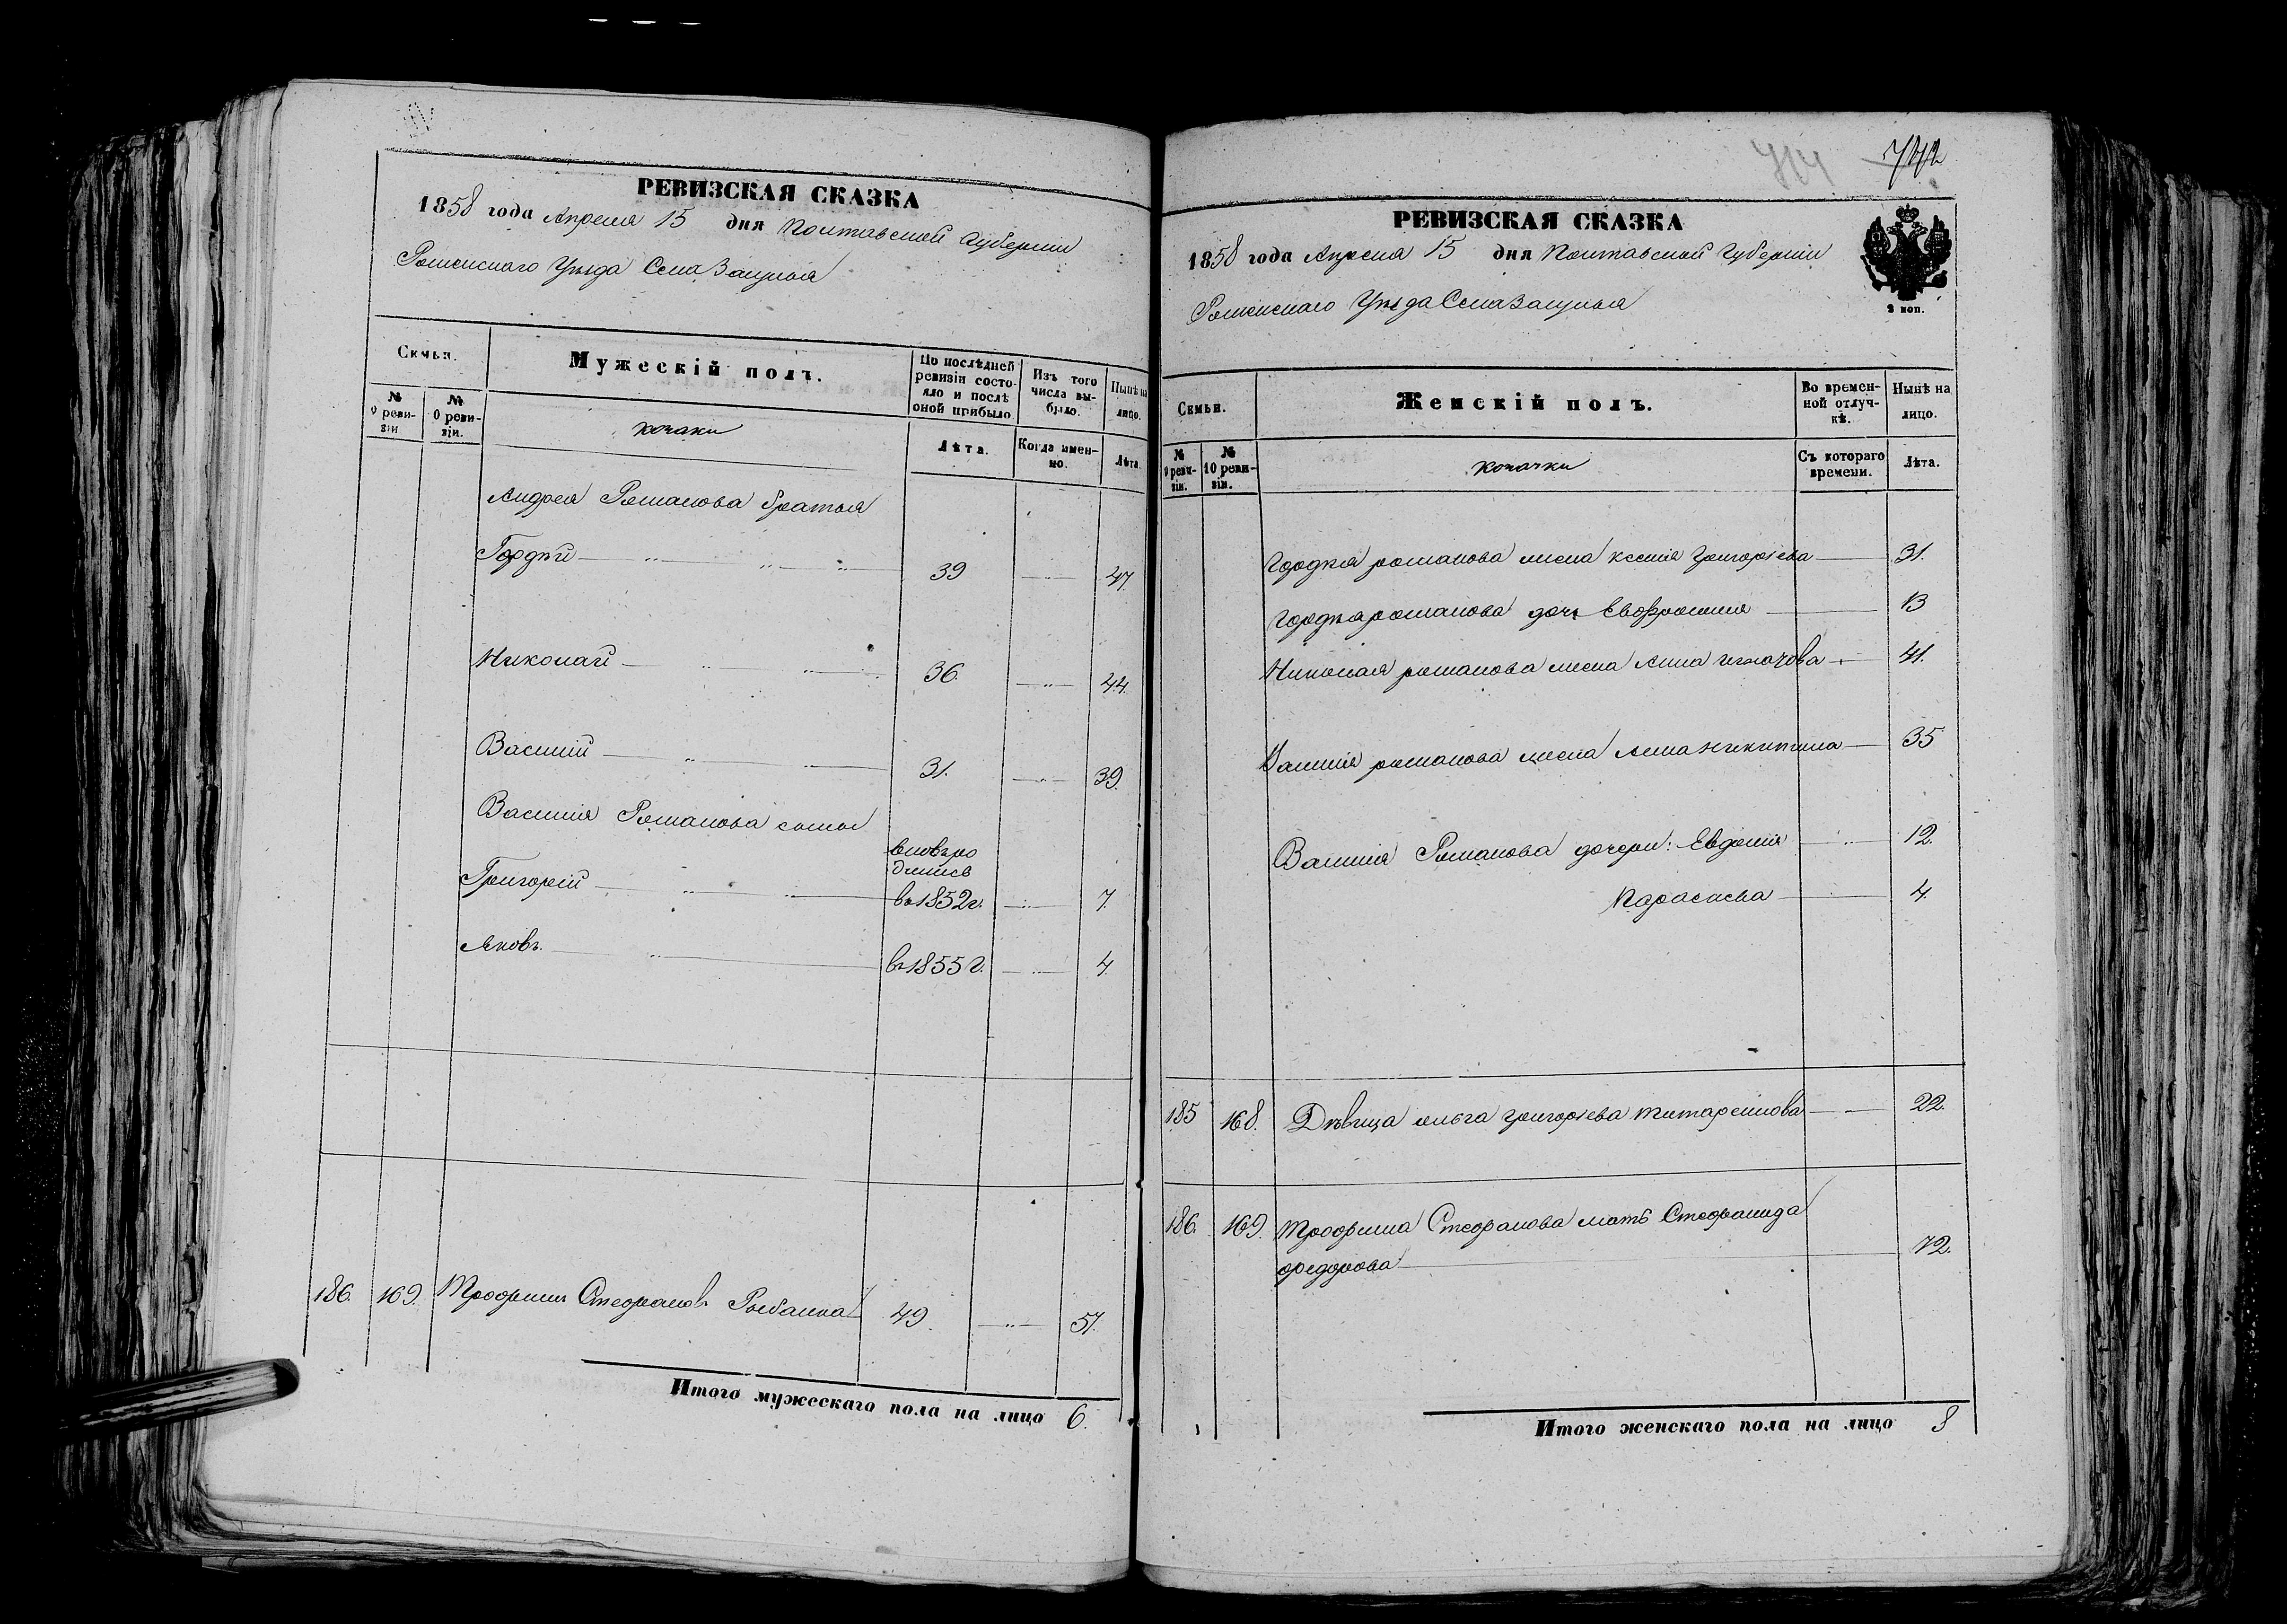 РЕВИЗСКАЯ СКАЗКА
1858 года Апреля 15 дня Полтавской Губернии
Роменскаго Уѣзда Села Заруцья
Семьи.
Мужескій полъ.
По послѣдней ревизіи состояло и послѣ оной прибыло.
Изъ того числа выбыло.
Нынѣ на лицо.
№ 9 ревизіи.
№ 10 ревизіи.
козаки
Лѣта.
Когда именно.
Лѣта.
Андрея Романова братья
Гордѣй 39 47.
Николай 36. 44.
Василій 31. 39.
Василія Романова сыны
вновь родились
Григорій въ 1852 г. 7.
Яковъ. въ 1855 г. 4.
186. 169. Трофимъ Стефановъ Рыбалка 49. 57.
Итого мужескаго пола на лицо 6.
714 772
РЕВИЗСКАЯ СКАЗКА
1858 года Апреля 15 дня Полтавской Губерніи
Роменскаго Уѣзда Села Заруцья
2 коп.
Семьи.
Женскій полъ.
Во временной отлучкѣ.
Нынѣ на лицо.
№ 9 ревизіи.
№ 10 ревизіи.
козачки
Съ котораго времени.
Лѣта.
Гордѣя романова жена ксенія Григоріева 31.
Гордѣя романова дочь Евфросинія 13
Николая романова жена Анна 41.
Василія романова жена Анна никитина 35
Василія Романова дочери: Евдокія 12.
Параскева 4.
185 168. Дѣвица ольга григоріева титаренкова 22.
186. 169. Трофима Стефанова мать Стефанида
федорова 72.
Итого женскаго пола на лицо 8